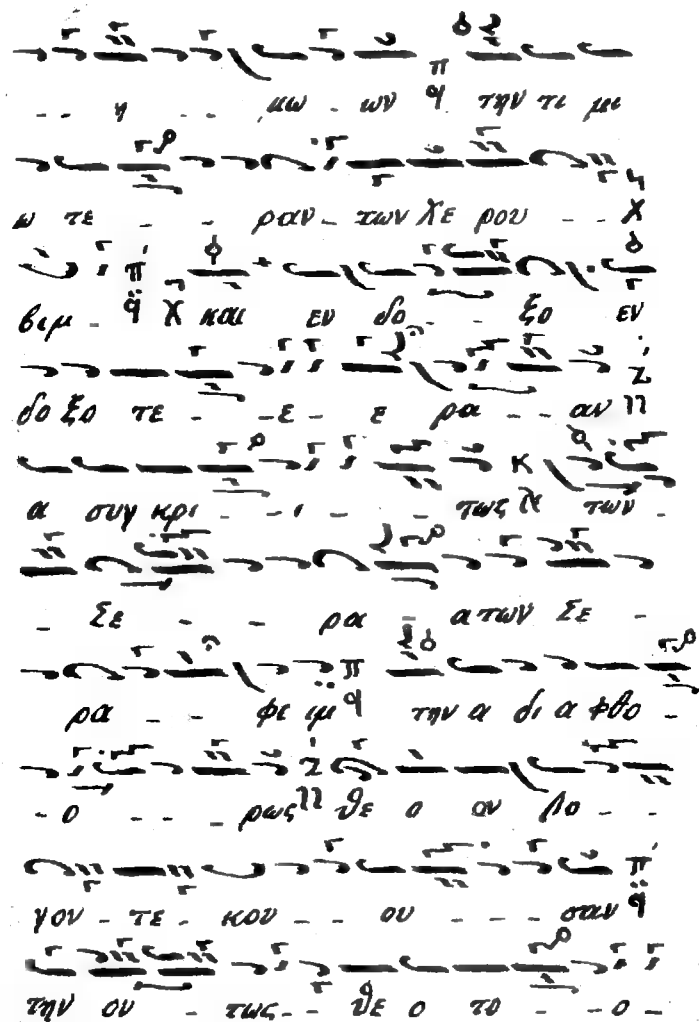 - - η - - μω - ων την τι μι
ω τε - - ραν - των Χε ρου - - -
βιμ - και εν δο - - ξο εν
δο ξο τε - - ε - ε ρα - - - αν
α συγ κρι - - ι - - τως των -
- Σε - - ρα - α των Σε -
ρα - - φι ιμ την α δι α φθο -
- ο - - - ρως θε ο ον λο - -
γον - τε - κου - - ου - - - - σαν
την ον - τως - - θε ο το - - - ο -